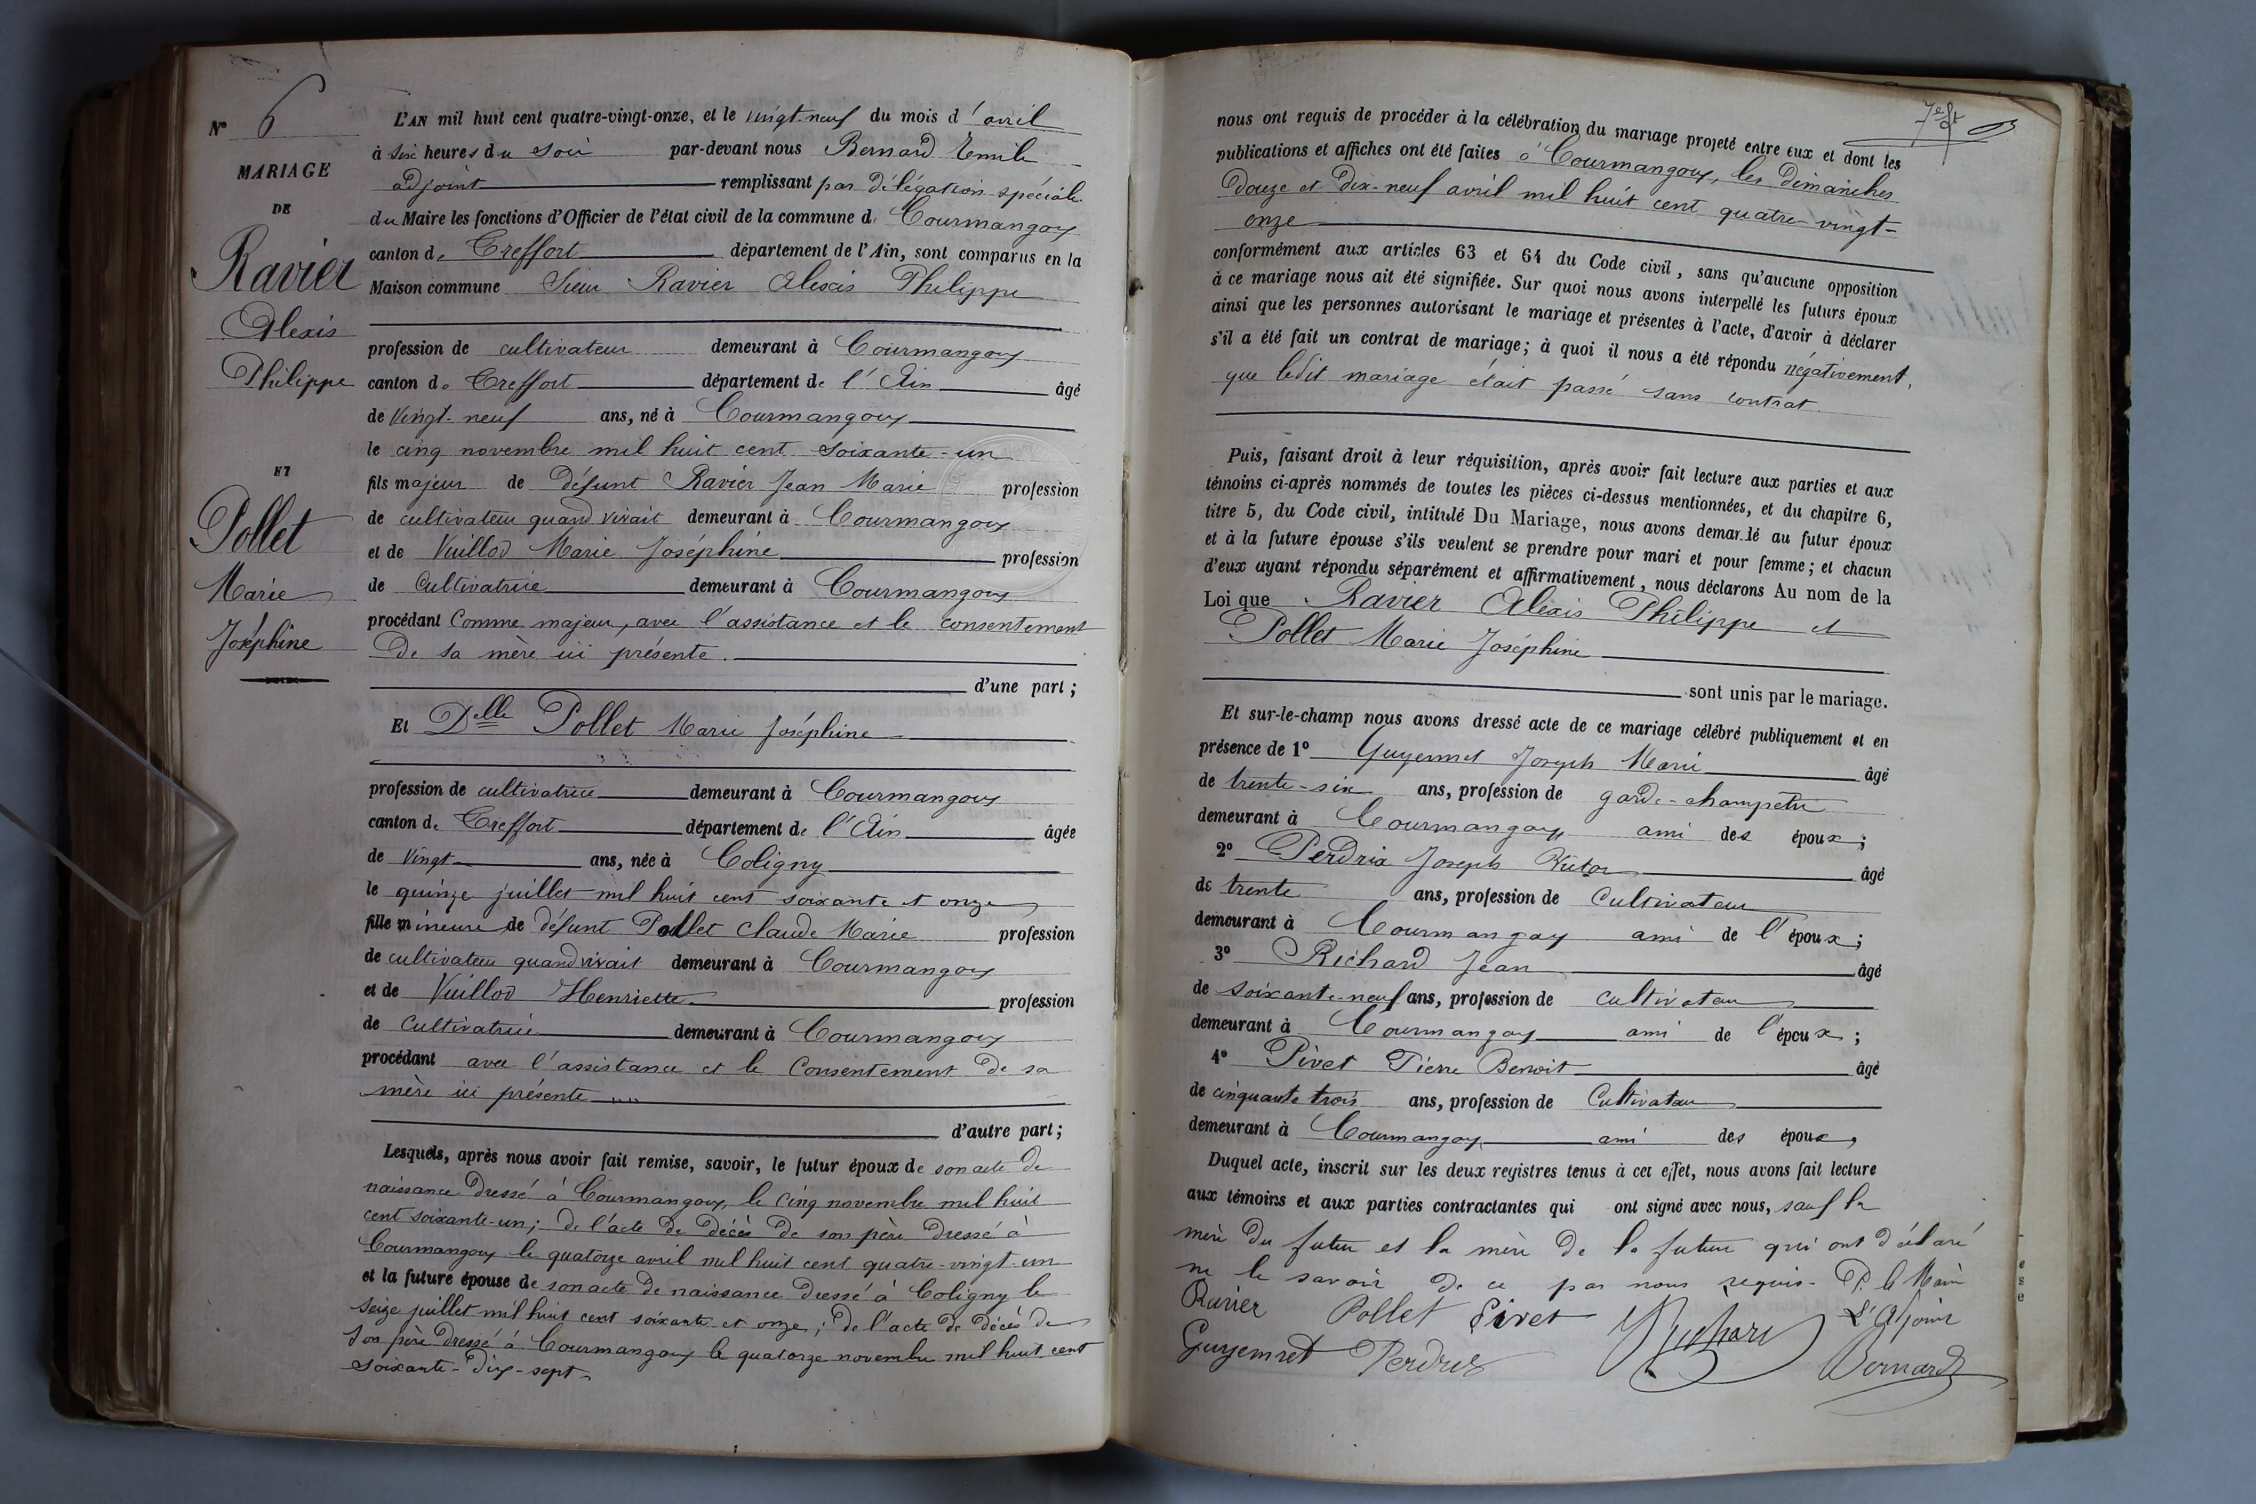 N° 6
MARIAGE
DE
Ravier
Alexis
Philippe
ET
Pollet
Marie
Joséphine
L'AN mil huit cent quatre-vingt-onze, et le vingt-neuf du mois d'avril
à six heures du soir par-devant nous Bernard Emile
adjoint remplissant par délégation spéciale
du Maire les fonctions d'Officier de l'état civil de la commune de Courmangoux
canton de Treffort département de l'Ain, sont comparus en la
Maison commune Sieur Ravier Alexis Philippe
profession de cultivateur demeurant à Courmangoux
canton de Treffort département de l'Ain âgé
de vingt-neuf ans, né à Courmangoux
le cinq novembre mil huit cent soixante-un
fils majeur de défunt Ravier Jean Marie profession
de cultivateur quand vivait demeurant à Courmangoux
et de Vuillod Marie Joséphine profession
de Cultivatrice demeurant à Courmangoux
procédant Comme majeur, avec l'assistance et le consentement
de sa mère ici présente.
d'une part;
Et Delle Pollet Marie Joséphine
profession de cultivatrice demeurant à Courmangoux
canton de Treffort département de l'Ain âgée
de vingt ans, née à Coligny
le quinze juillet mil huit cent soixante et onze
fille mineure de défunt Pollet Claude Marie profession
de cultivateur quand vivait demeurant à Courmangoux
et de Vuillod Henriette profession
de Cultivatrice demeurant à Courmangoux
procédant avec l'assistance et le Consentement de sa
mère ici présente
d'autre part;
Lesquels, après nous avoir fait remise, savoir, le futur époux de son acte de
naissance dressé à Courmangoux, le cinq novembre mil huit
cent soixante-un; de l'acte de décès de son père dressé à
Courmangoux le quatorze avril mil huit cent quatre-vingt-un
et la future épouse de son acte de naissance dressé à Coligny le
seize juillet mil huit cent soixante et onze; de l'acte de décès de
son père dressé à Courmangoux le quatorze novembre mil huit cent
soixante-dix-sept
nous ont requis de procéder à la célébration du mariage projeté entre eux et dont les
publications et affiches ont été faites à Courmangoux, les dimanches
douze et dix-neuf avril mil huit cent quatre-vingt-
onze
conformément aux articles 63 et 64 du Code civil, sans qu'aucune opposition
à ce mariage nous ait été signifiée. Sur quoi nous avons interpellé les futurs époux
ainsi que les personnes autorisant le mariage et présentes à l'acte, d'avoir à déclarer
s'il a été fait un contrat de mariage; à quoi il nous a été répondu négativement,
que ledit mariage était passé sans contrat.
Puis, faisant droit à leur réquisition, après avoir fait lecture aux parties et aux
témoins ci-après nommés de toutes les pièces ci-dessus mentionnées, et du chapitre 6,
titre 5, du Code civil, intitulé Du Mariage, nous avons demandé au futur époux
et à la future épouse s'ils veulent se prendre pour mari et pour femme; et chacun
d'eux ayant répondu séparément et affirmativement, nous déclarons Au nom de la
Loi que Ravier Alexis Philippe et
Pollet Marie Joséphine
sont unis par le mariage.
Et sur-le-champ nous avons dressé acte de ce mariage célébré publiquement et en
présence de 1° Guyennet Joseph Marie âgé
de trente-six ans, profession de garde-champêtre
demeurant à Courmangoux ami des époux;
2° Perdrix Joseph Victor âgé
de trente ans, profession de Cultivateur
demeurant à Courmangoux ami de l'époux;
3° Richard Jean âgé
de soixante-neuf ans, profession de cultivateur
demeurant à Courmangoux ami de l'époux;
4° Pivet Pierre Benoit âgé
de cinquante trois ans, profession de Cultivateur
demeurant à Courmangoux ami des époux,
Duquel acte, inscrit sur les deux registres tenus à cet effet, nous avons fait lecture
aux témoins et aux parties contractantes qui ont signé avec nous, sauf la
mère du futur et la mère de la future qui ont déclaré
ne le savoir de ce par nous requis. P. le Maire
Ravier Pollet Pivet Richard L'Adjoint
Guyennet Perdrix Bernard